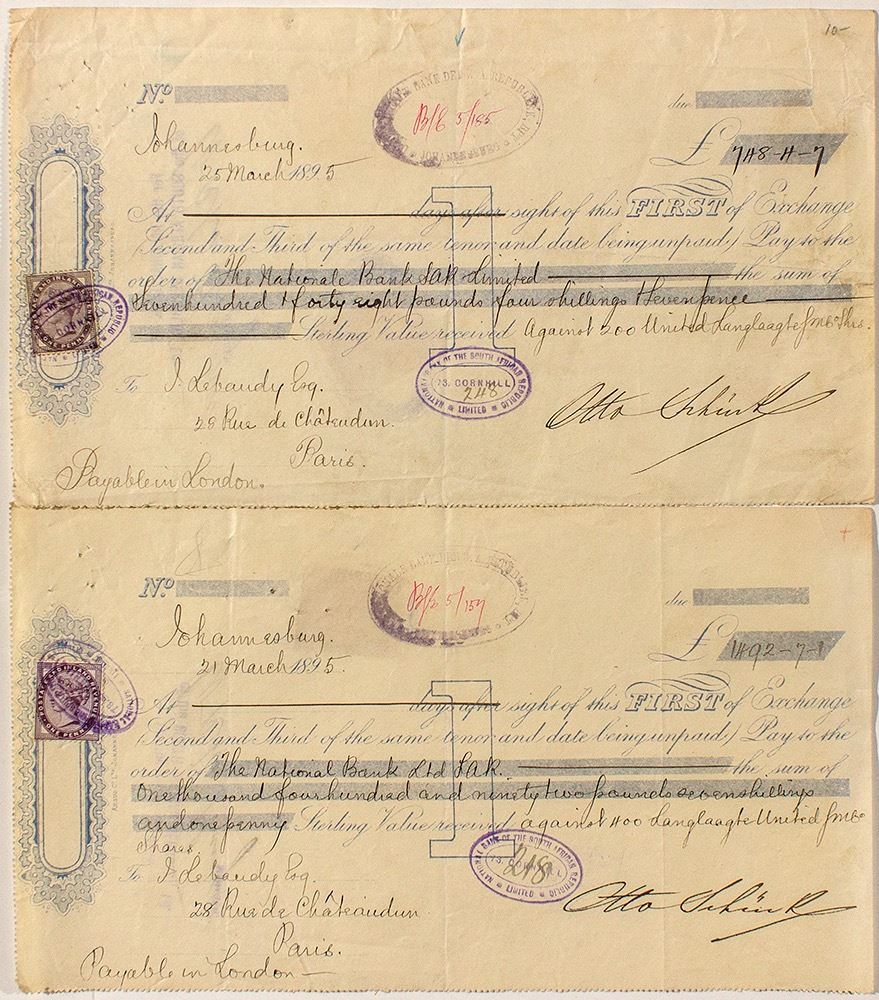 10-
No due
NATIONALE BANK DER Z. A. REPUBLIEK
B/E 5/155
JOHANNESBURG
Johannesburg.
25 March 1895
£ 748-4-7
At days after sight of this FIRST of Exchange
(Second and Third of the same tenor and date being unpaid,) Pay to the
order of The Nationale Bank SAR Limited the sum of
Sevenhundred & forty eight pounds four shillings & sevenpence
Sterling Value received Against 200 United Langlaagte GMCo Shrs.
NATIONAL BANK OF THE SOUTH AFRICAN REPUBLIC
73. CORNHILL
248
LIMITED
To J. Lebaudy Esq.
29 Rue de Châteudun.
Paris.
Otto Schürk
Payable in London.
No due
B/E 5/157
Johannesburg.
21 March 1895.
£ 1492-7-1
At days after sight of this FIRST of Exchange
(Second and Third of the same tenor and date being unpaid,) Pay to the
order of The National Bank Ltd SAR. the sum of
One thousand four hundred and ninety two pounds seven shillings
and one penny Sterling Value received against 400 Langlaagte United GMCo
Shares.
NATIONAL BANK OF THE SOUTH AFRICAN REPUBLIC
73. CORNHILL
248
LIMITED
To J. Lebaudy Esq.
28 Rue de Châteaudun
Paris.
Otto Schürk
Payable in London